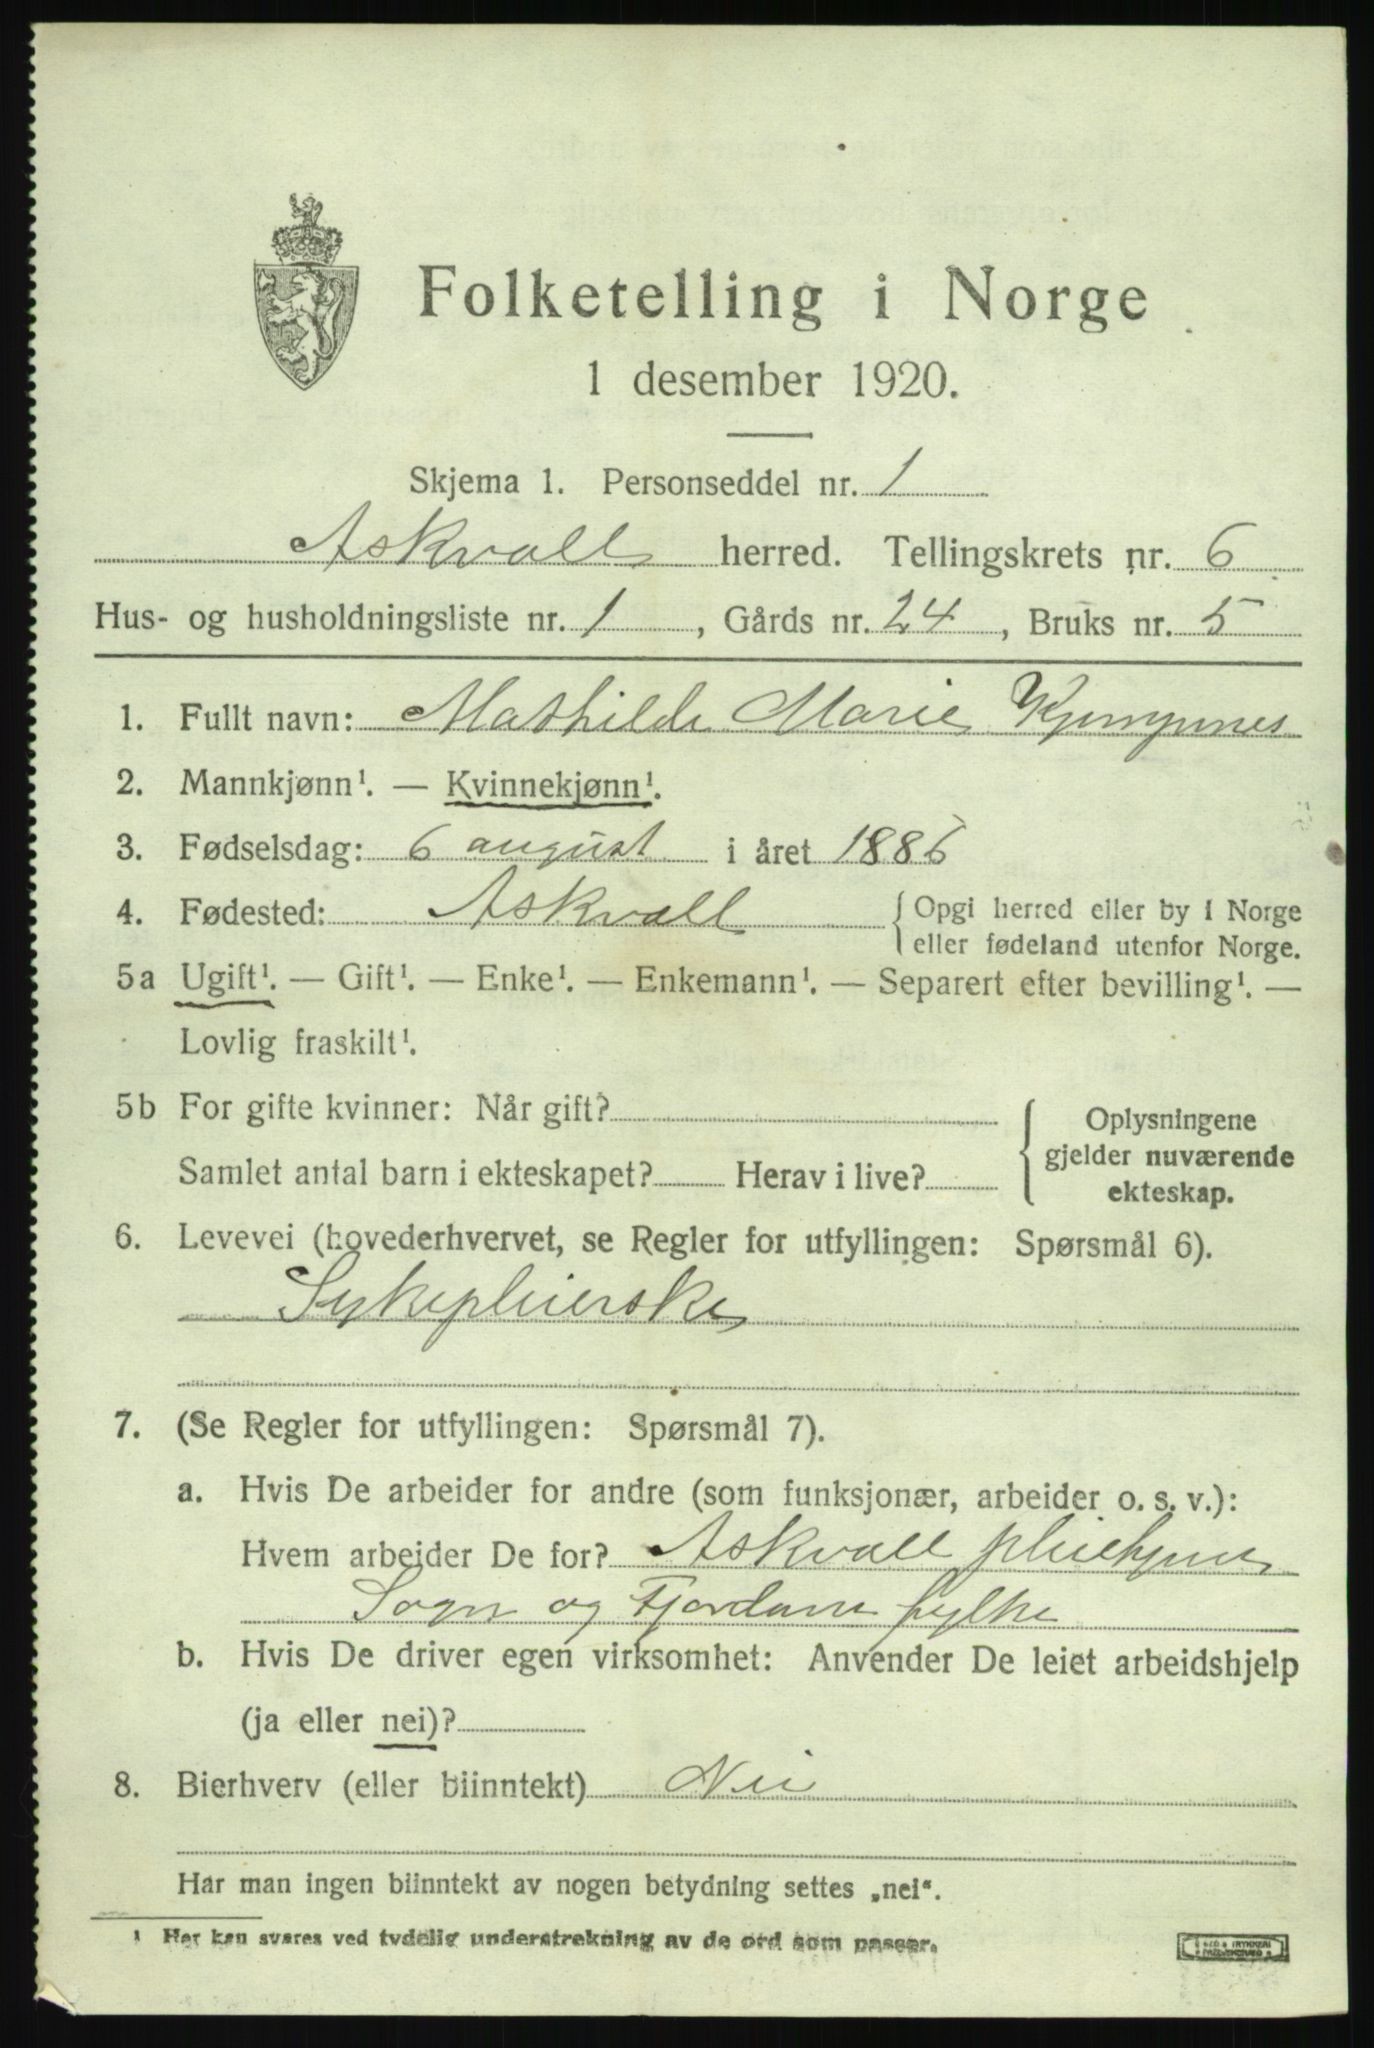 Folketelling i Norge
1 desember 1920.
Skjema 1. Personseddel nr. 1
Askvoll herred. Tellingskrets nr. 6
Hus- og husholdningsliste nr. 1, Gårds nr. 24, Bruks nr. 5
1. Fullt navn: Mathilde Marie
2. Mannkjønn¹. — Kvinnekjønn¹.
3. Fødselsdag: 6 august i året 1886
4. Fødested: Askvoll { Opgi herred eller by i Norge
eller fødeland utenfor Norge.
5a Ugift¹. — Gift¹. — Enke¹. — Enkemann¹. — Separert efter bevilling¹. —
Lovlig fraskilt¹.
5b For gifte kvinner: Når gift?
Samlet antal barn i ekteskapet? Herav i live?
{ Oplysningene
gjelder nuværende
ekteskap.
6. Levevei (hovederhvervet, se Regler for utfyllingen: Spørsmål 6).
Sykepleierske
7. (Se Regler for utfyllingen: Spørsmål 7).
a. Hvis De arbeider for andre (som funksjonær, arbeider o. s. v.):
Hvem arbeider De for? Askvoll pleiehjem
Sogn og Fjordane fylke
b. Hvis De driver egen virksomhet: Anvender De leiet arbeidshjelp
(ja eller nei)?
8. Bierhverv (eller biinntekt) Nei
Har man ingen biinntekt av nogen betydning settes „nei“.
1 Her kan svares ved tydelig understrekning av de ord som passer.